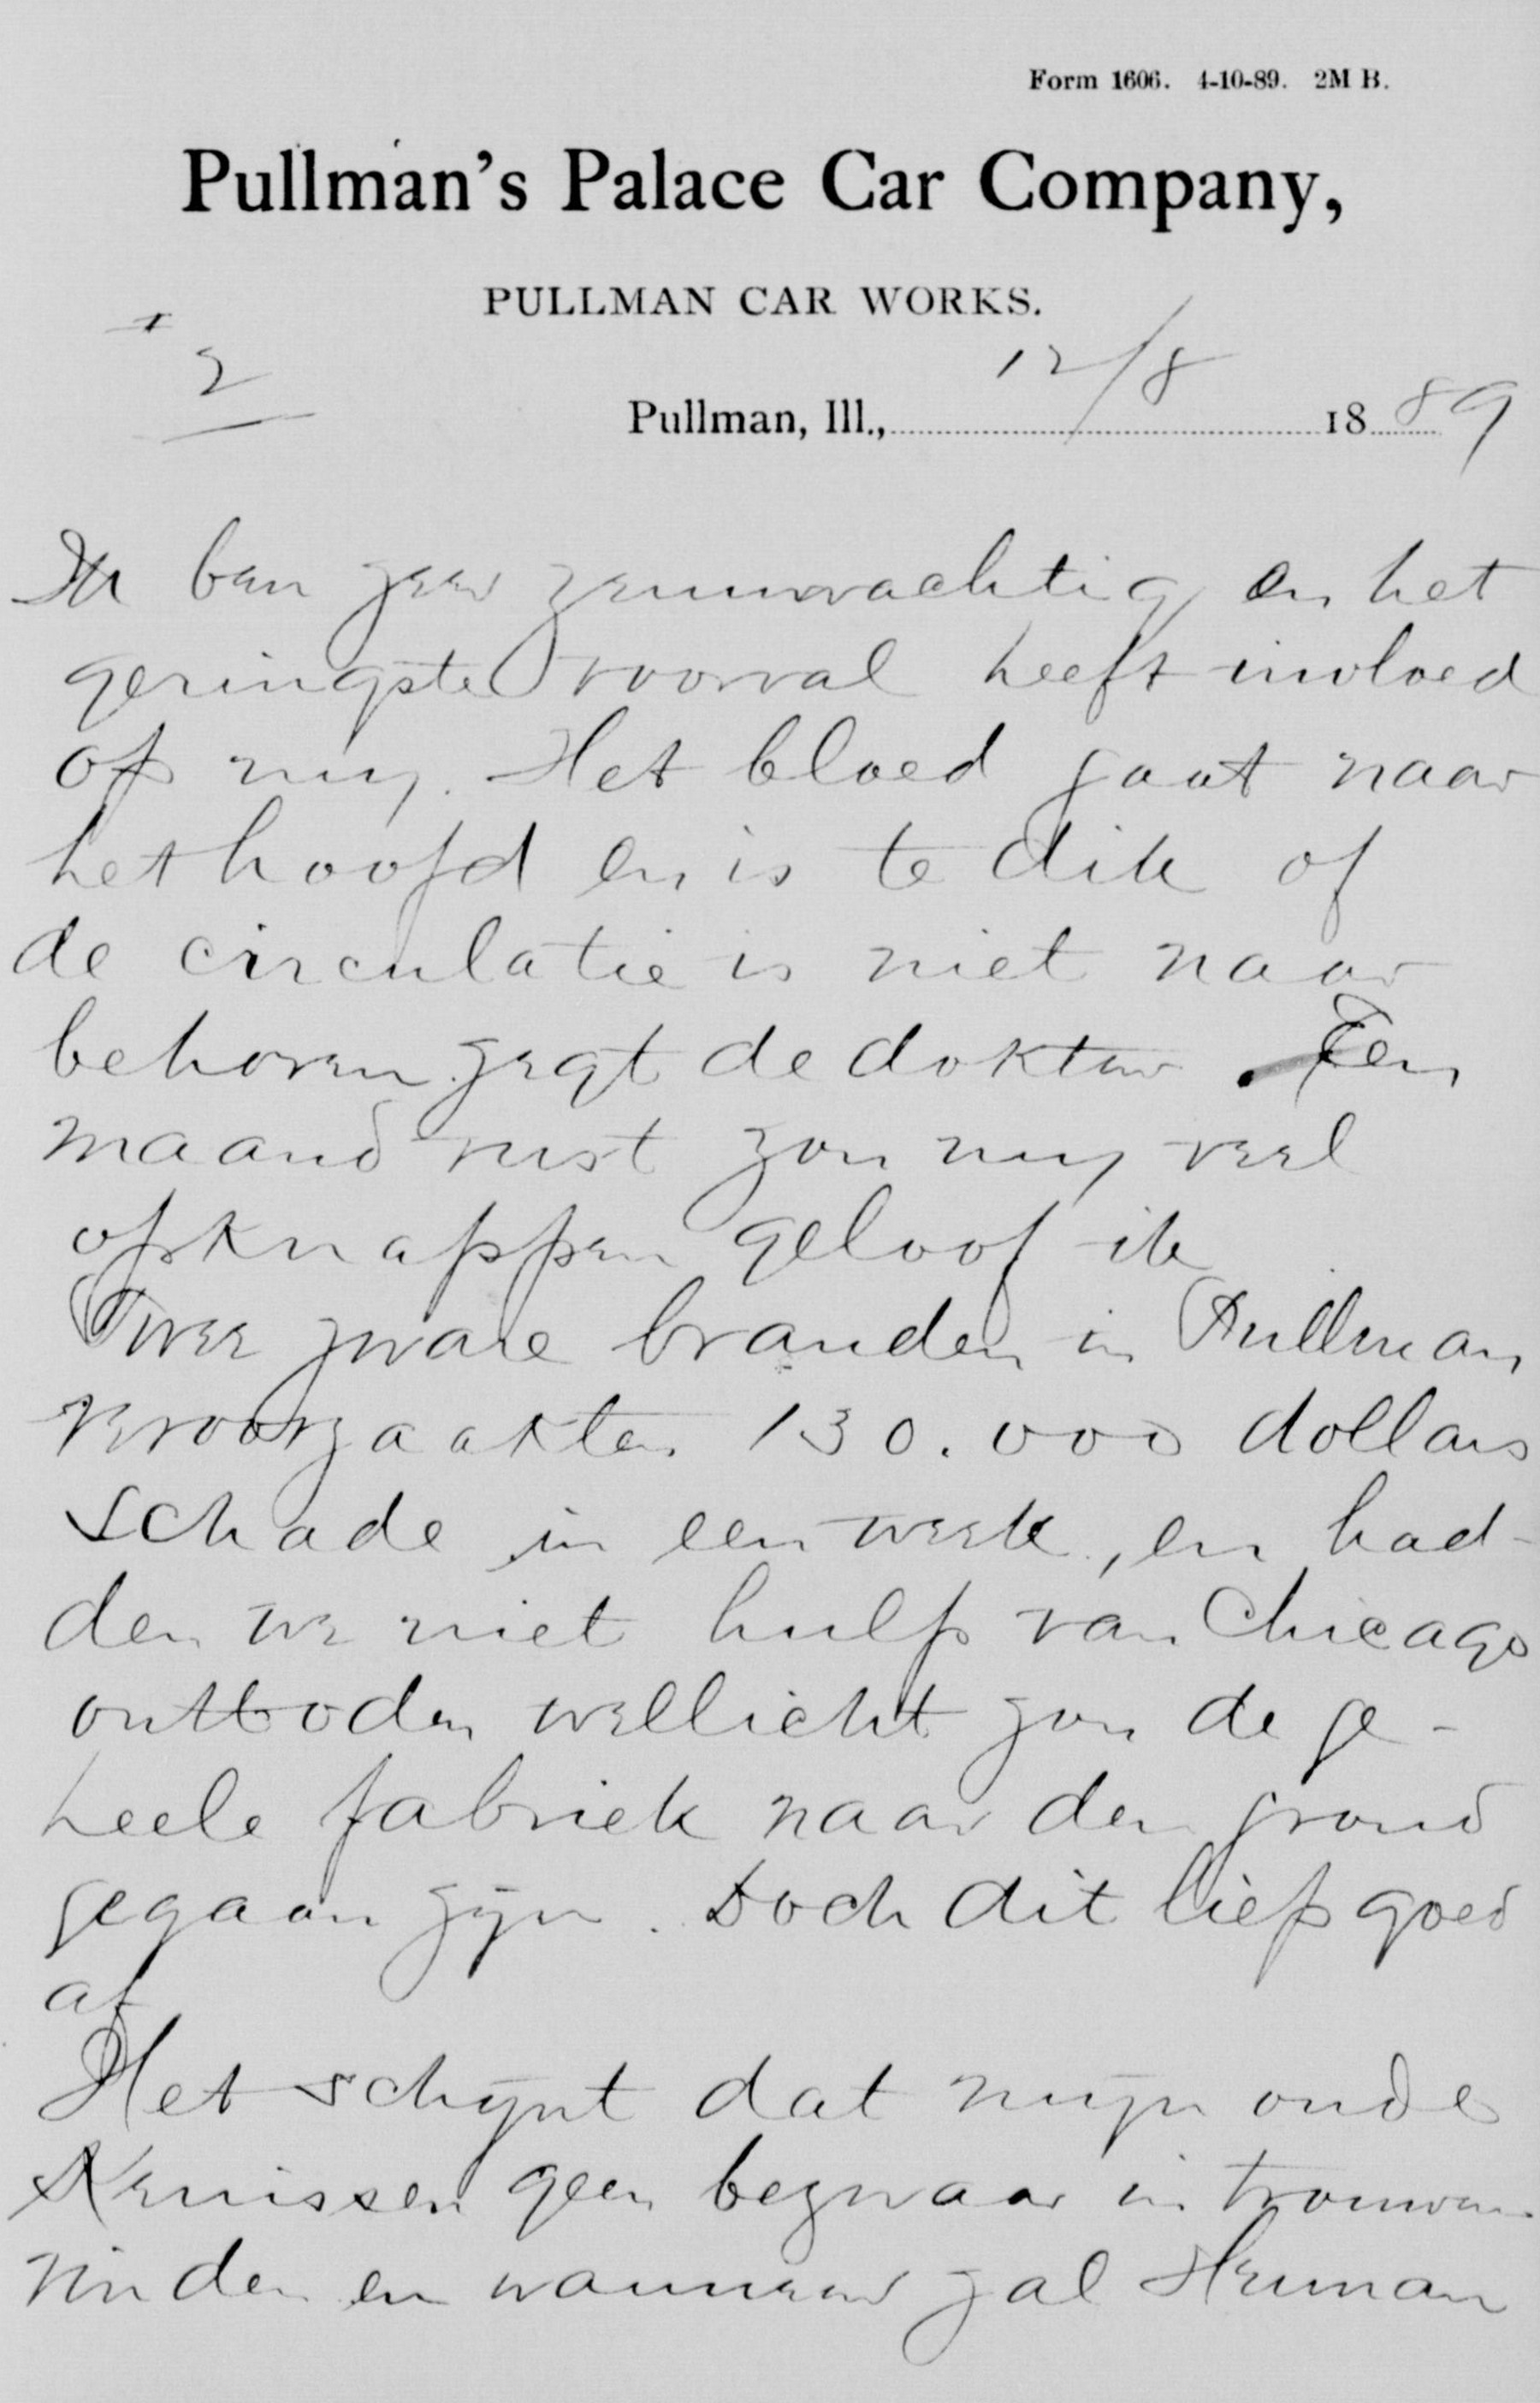 Form 1606. 4-10-89. 2M B.
Pullman's Palace Car Company,
PULLMAN CAR WORKS.
2
Pullman, Ill., 12/8 1889
Ik ben zeer zenuwachtig en het
geringste voorval heeft invloed
op my. Het bloed gaat naar
het hoofd en is te dik of
de circulatie is niet naar
behoren zegt de dokter. Een
maand rust zou my veel
opknappen geloof ik
Twee zware branden in Pullman
veroorzaakten 130.000 dollars
schade in een week, en had-
den we niet hulp van Chicago
ontboden wellicht zou de ge-
heele fabriek naar den grond
gegaan zyn. Doch dit liep goed
af
Het schynt dat myn oude
Kennissen geen bezwaar in trouwen
vinden en wanneer zal Herman